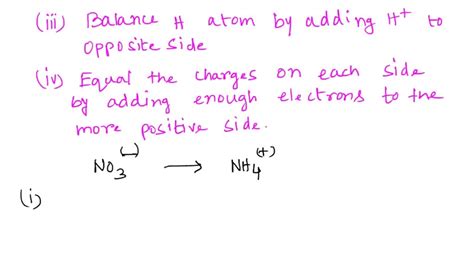 (iii) Balance H atom by adding H⁺ to
opposite side
(iv) Equal the charges on each side
by adding enough electrons to the
more positive side.
NO₃⁽⁻⁾ ⟶ NH₄⁽⁺⁾
(i)